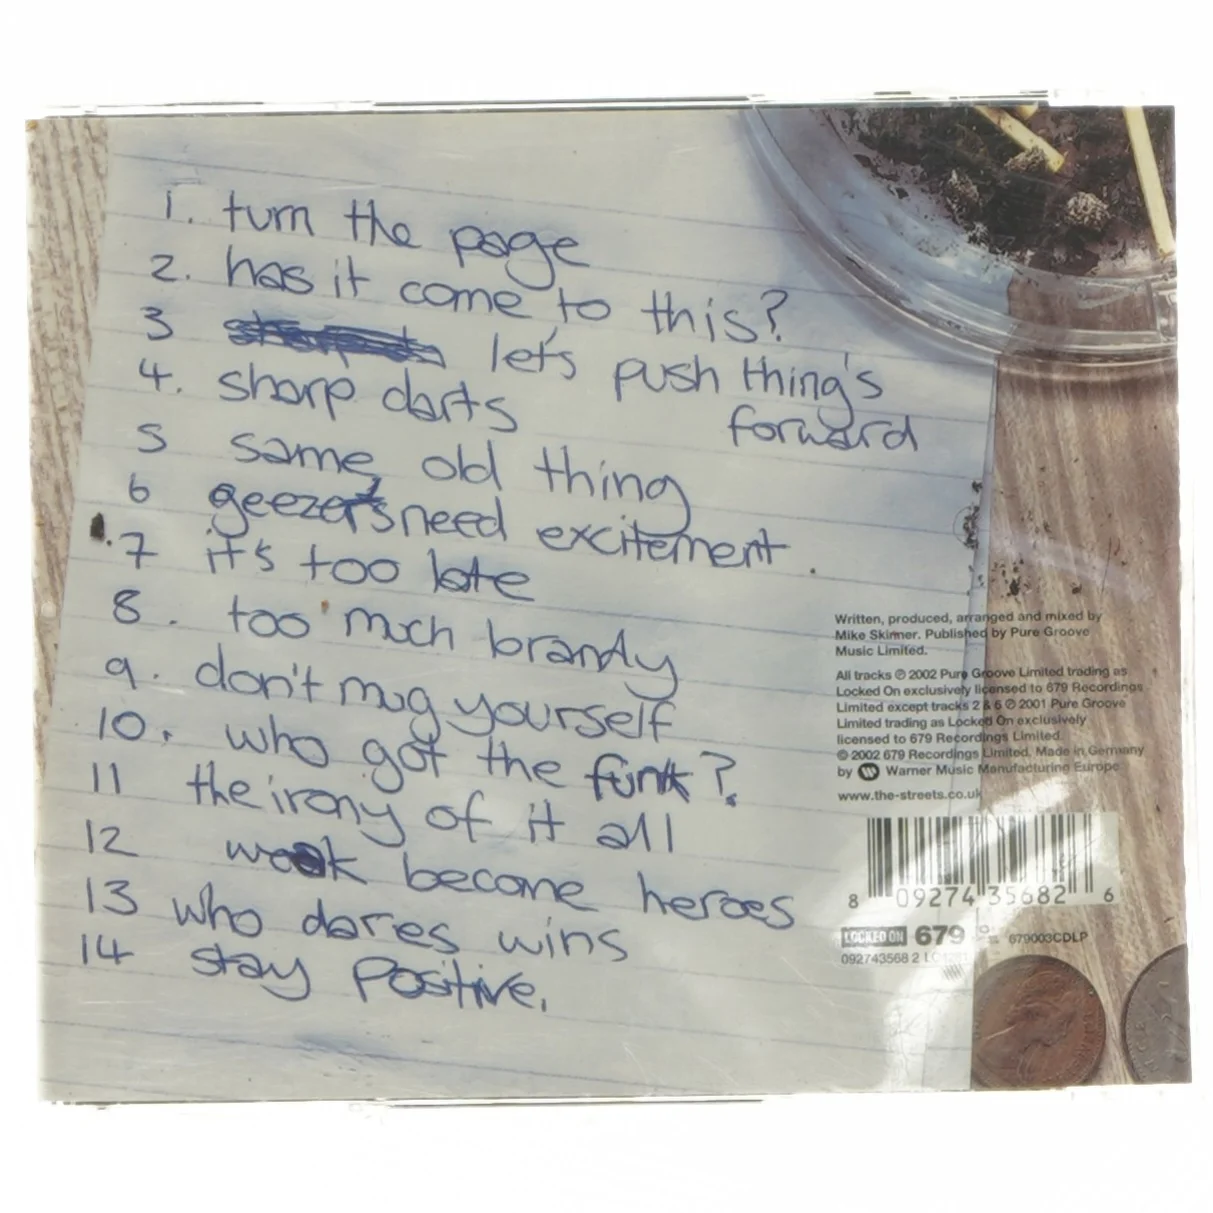 1. turn the page
2. has it come to this?
3 let's push thing's
forward
4. sharp darts
5 same old thing
6 geezers need excitement.
7 it's too late
8. too much brandy
9. don't mug yourself
10. who got the funk?
11 the irony of it all
12 weak become heroes
13 who dares wins
14 stay positive.
Written, produced, arranged and mixed by
Mike Skinner. Published by Pure Groove
Music Limited.
All tracks ℗ 2002 Pure Groove Limited trading as
Locked On exclusively licensed to 679 Recordings
Limited except tracks 2 & 6 ℗ 2001 Pure Groove
Limited trading as Locked On exclusively
licensed to 679 Recordings Limited.
© 2002 679 Recordings Limited. Made in Germany
by Warner Music Manufacturing Europe
www.the-streets.co.uk
8 09274 35682 6
LOCKED ON 679 679003CDLP
092743568 2